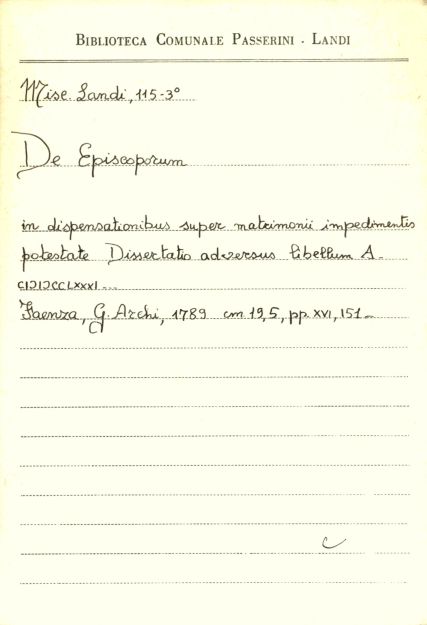 BIBLIOTECA COMUNALE PASSERINI - LANDI
Misc. Landi, 115-3°
De Episcoporum
in dispensationibus super matrimonii impedimentis
potestate Dissertatio adversus libellum A.
CIƆIƆCCLXXXI...
Faenza, G. Archi, 1789 cm 19,5, pp. XVI, 151.
c